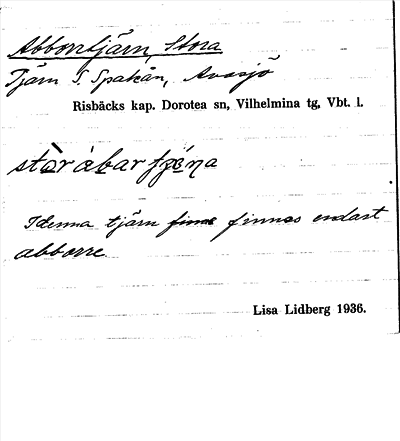 Abborrtjärn, Stora
Tjärn S. Spakån, Avasjö
Risbäcks kap. Dorotea sn, Vilhelmina tg, Vbt. l.
I denna tjärn finns finnes endast
abborre
Lisa Lidberg 1936.